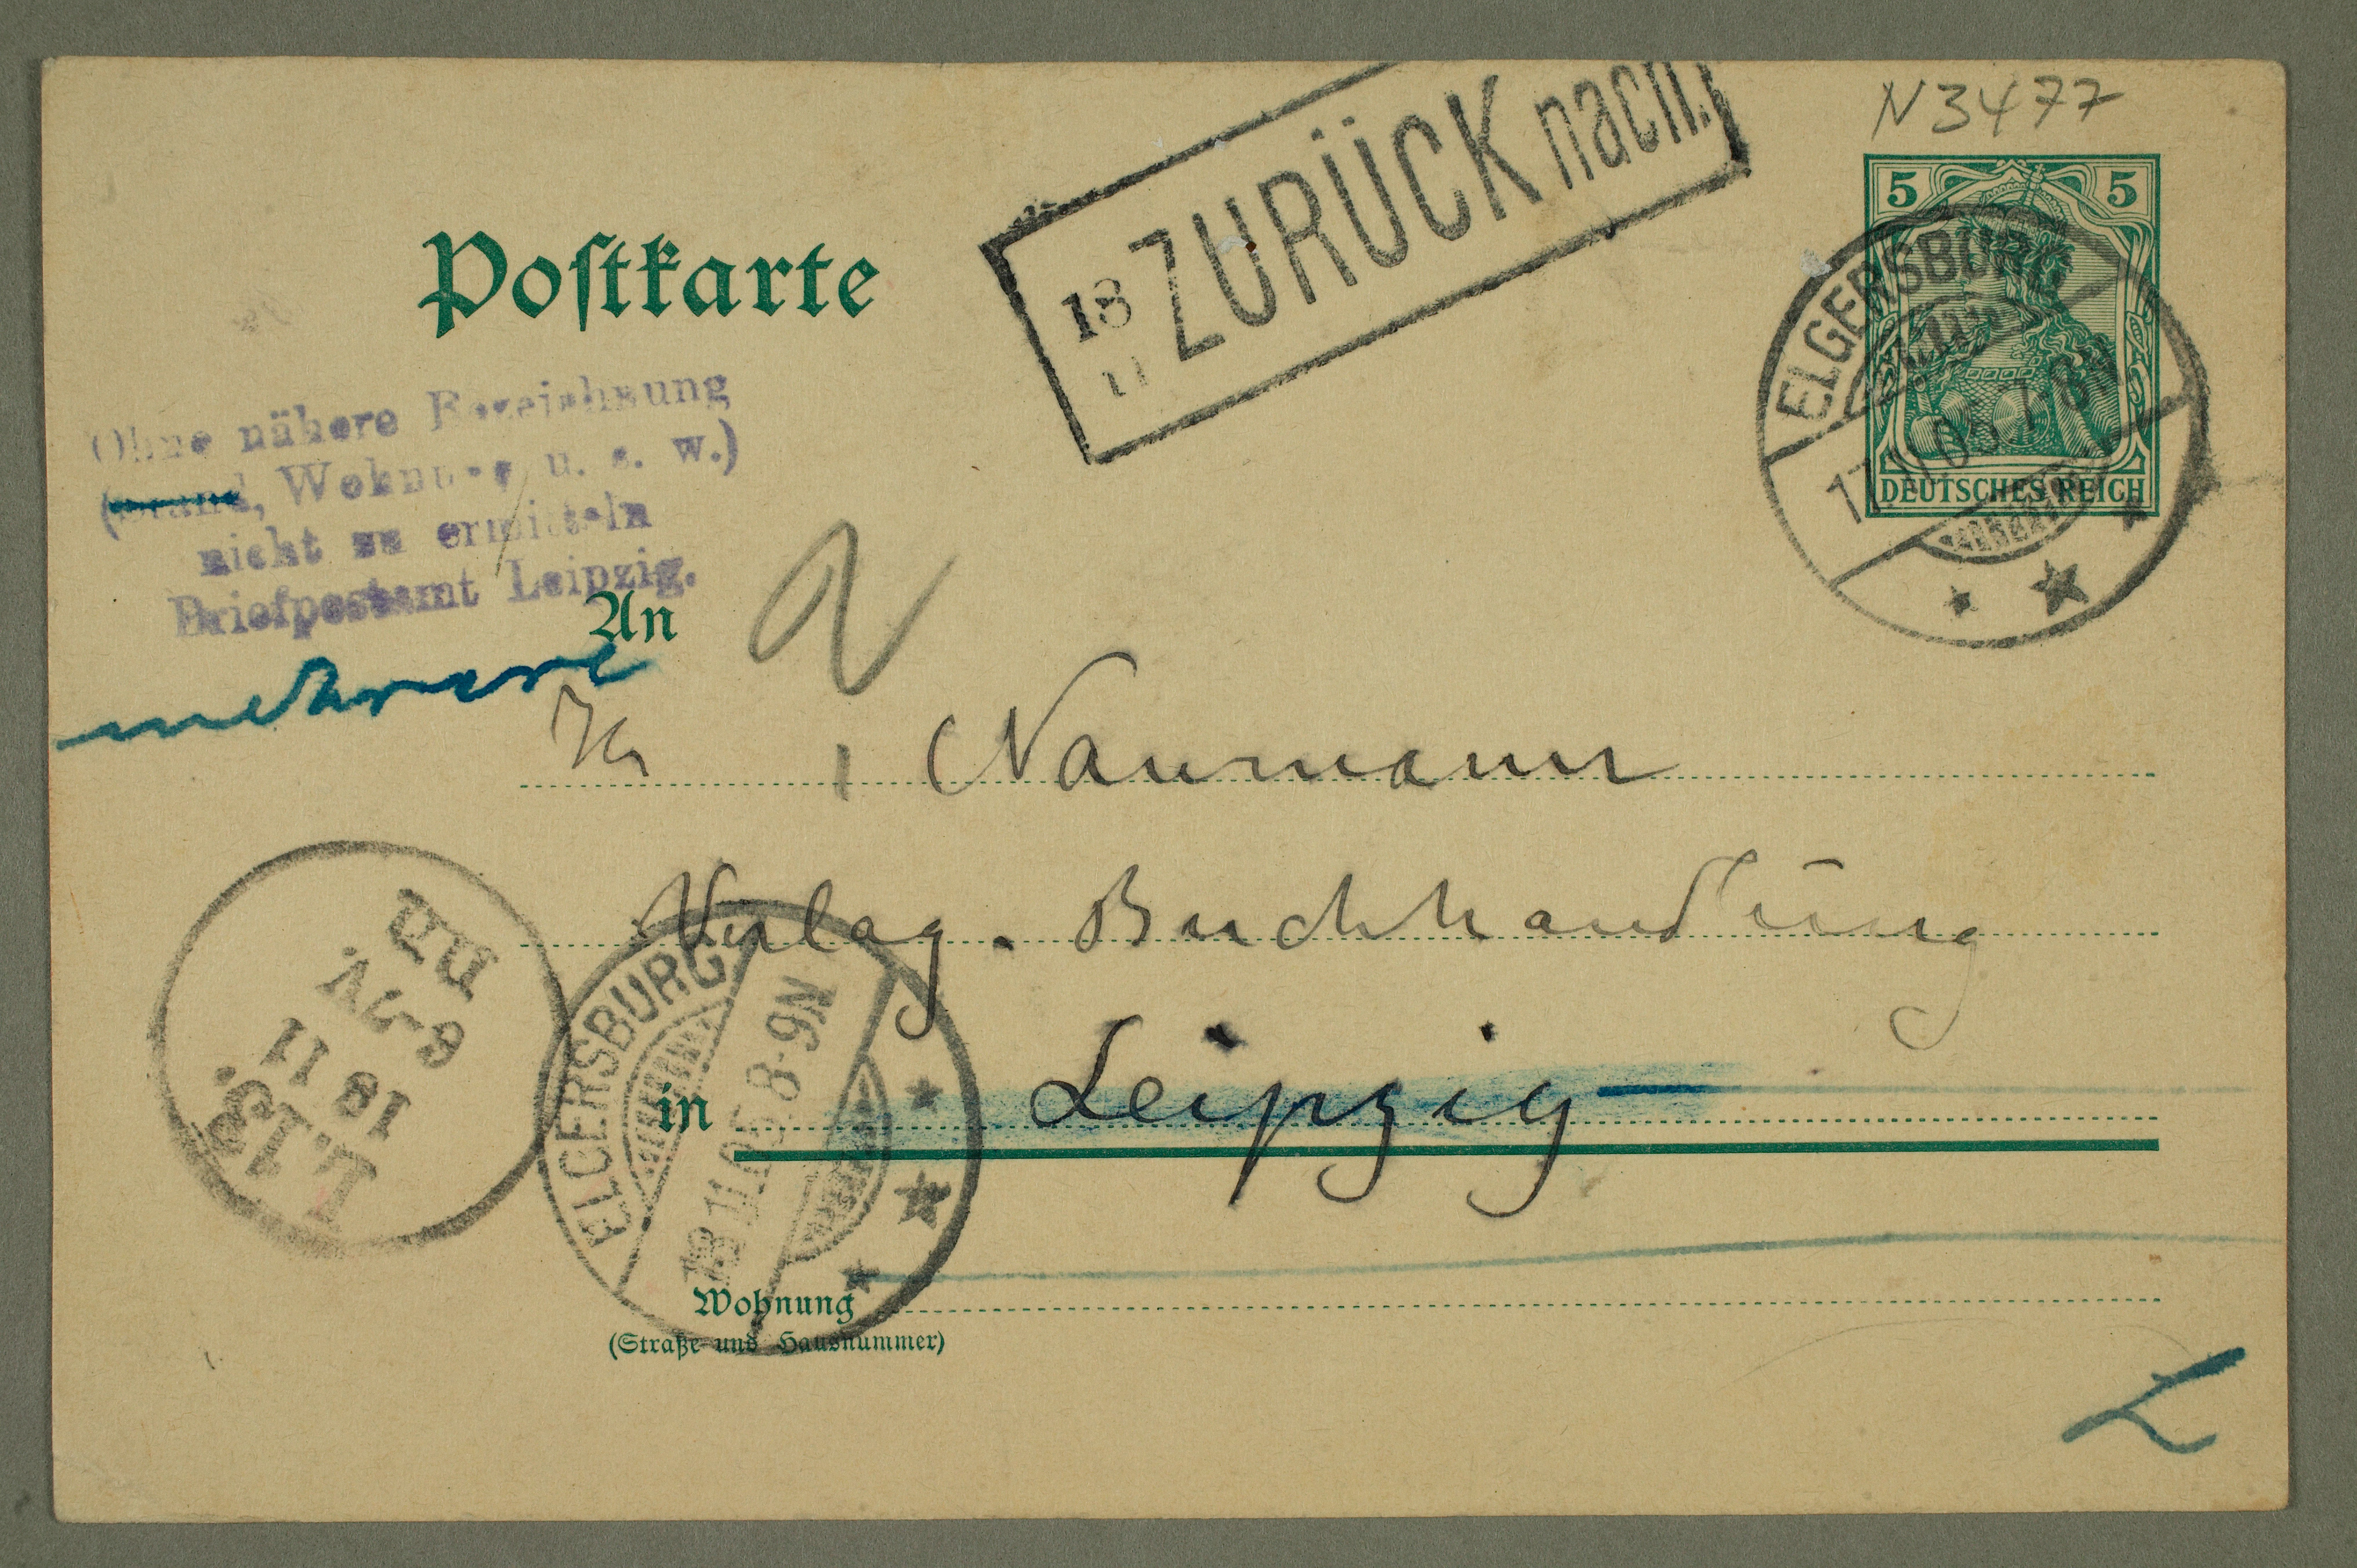 N 3477
Postkarte
18 ZURÜCK nach
11
5 5
DEUTSCHES REICH
ELGERSBURG
17.11.05.7-8N
Ohne nähere Bezeichnung
(Stand, Wohnung u. s. w.)
nicht zu ermitteln
Briefpostamt Leipzig.
mehrere
An
Hr Naumann
Verlag. Buchhandlung
in Leipzig
L.13.
18 11
6-7V.
ELGERSBURG
18.11.05.8-9N
Wohnung
(Straße und Hausnummer)
L